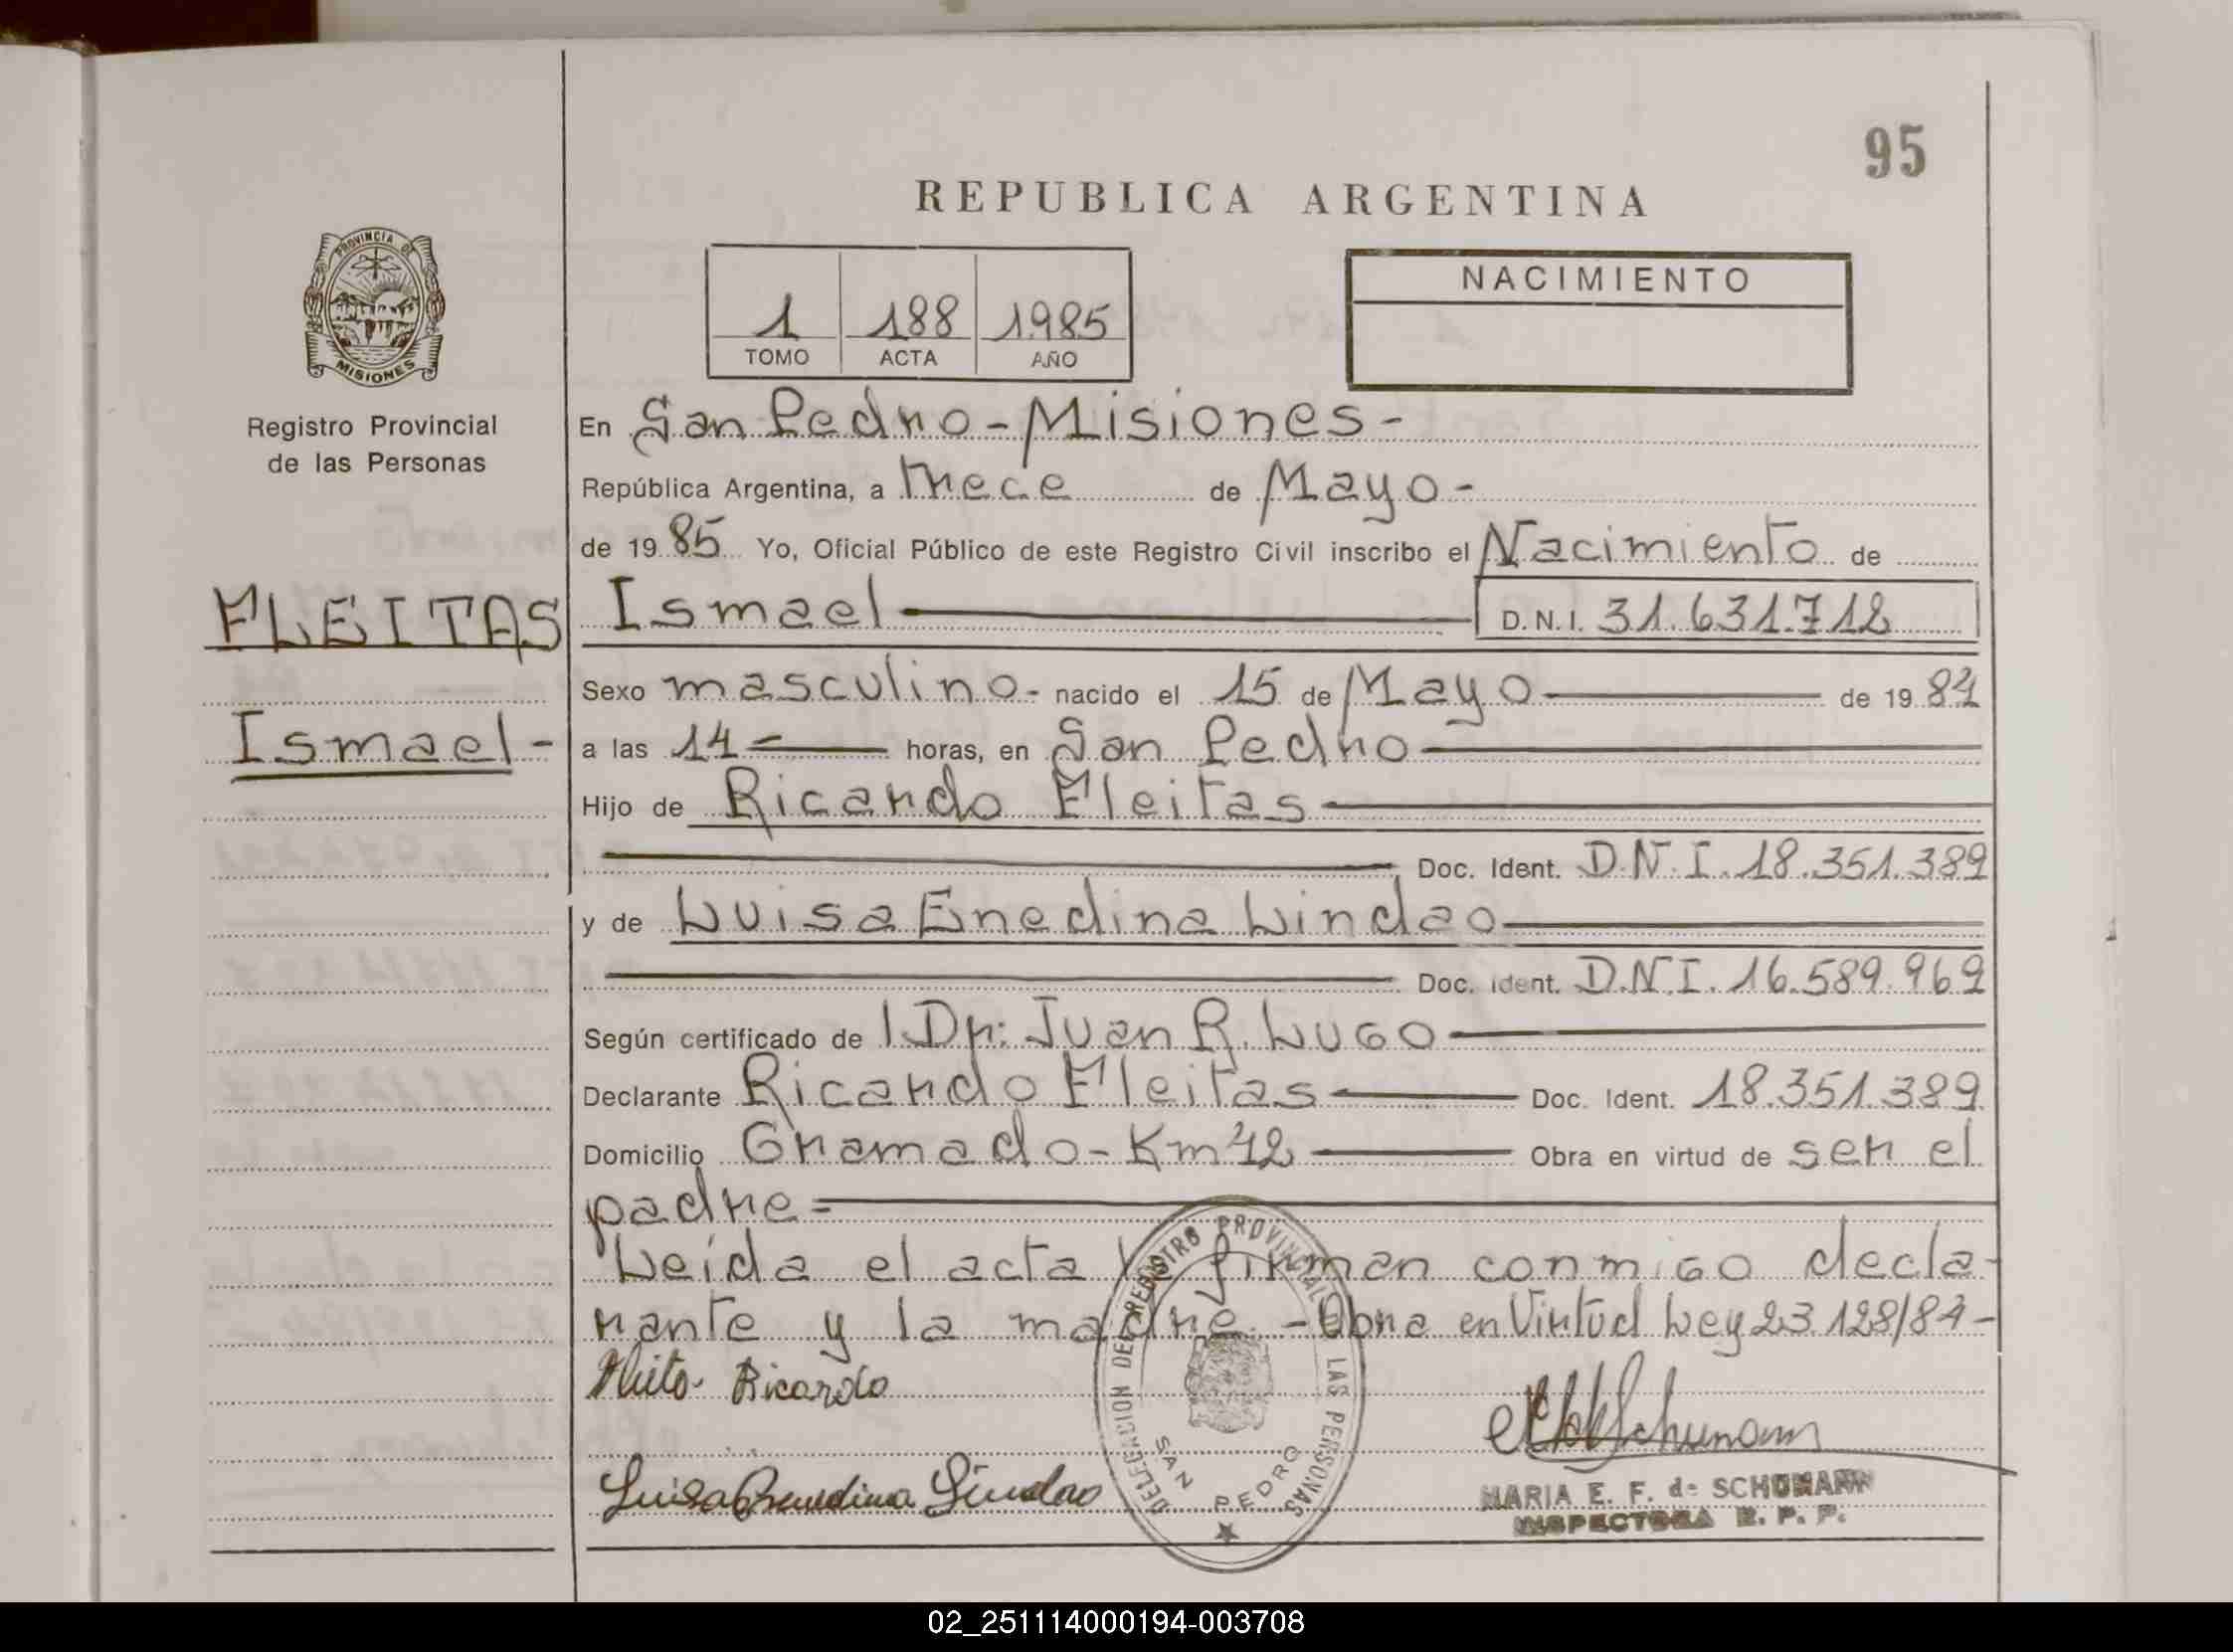 95
REPUBLICA ARGENTINA
PROVINCIA DE
MISIONES
Registro Provincial
de las Personas
1 188 1985
TOMO ACTA AÑO
NACIMIENTO
En San Pedro - Misiones -
República Argentina, a trece de Mayo -
de 1985 Yo, Oficial Público de este Registro Civil inscribo el Nacimiento de
FLEITAS Ismael D.N.I. 31.631.712
Sexo masculino - nacido el 15 de Mayo de 1984
Ismael - a las 14 - horas, en San Pedro
Hijo de Ricardo Fleitas
Doc. Ident. D.N.I. 18.351.389
y de Luisa Enedina Lindao
Doc. Ident. D.N.I. 16.589.969
Según certificado de Dr: Juan R. Lugo
Declarante Ricardo Fleitas Doc. Ident. 18.351.389
Domicilio Gramado - Km 42 Obra en virtud de ser el
padre =
Leída el acta la firman conmigo decla-
rante y la madre. - Obra en Virtud Ley 23.128/84 -
Ricardo
Luisa Enedina Lindao
DELEGACION DEL REGISTRO PROVINCIAL DE LAS PERSONAS
SAN PEDRO
MARIA E. F. de SCHUMANN
INSPECTORA R. P. P.
02_251114000194-003708